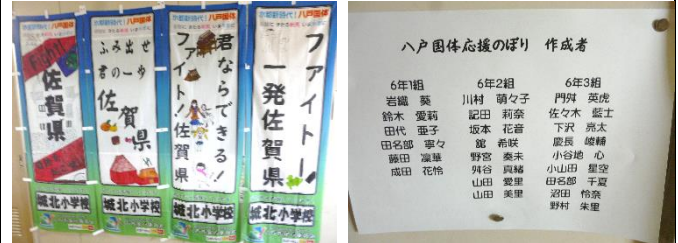 氷都新時代!八戸国体
Fight!!
佐賀県
城北小学校
氷都新時代!八戸国体
ふみ出せ
君の一歩
佐賀県
城北小学校
氷都新時代!八戸国体
君ならできる!
ファイト!佐賀県
城北小学校
氷都新時代!八戸国体
ファイトー!
一発佐賀県
城北小学校
八戸国体応援のぼり 作成者
6年1組
岩織 葵
鈴木 愛莉
田代 亜子
田名部 寧々
藤田 凜華
成田 花怜
6年2組
川村 萌々子
記田 莉奈
坂本 花音
舘 希咲
野宮 奏未
舛谷 真緒
山田 愛里
山田 美里
6年3組
門舛 英虎
佐々木 藍士
下沢 亮太
慶長 崚輔
小谷地 心
小山田 星空
田名部 千夏
沼田 怜奈
野村 朱里